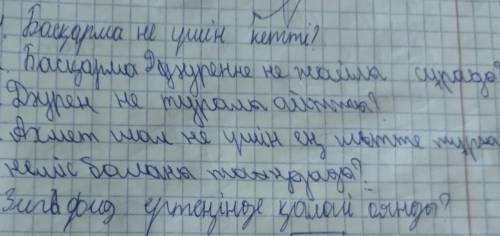 . Басқарма не үшін кетті?
. Басқарма Дзуренне не жайлы сұрады?
Джурен не туралы айтты?
. Ахмет шал не үшін ең
неліс баланы таңдады?
Зигфрид ертеңінде қалай оянды?